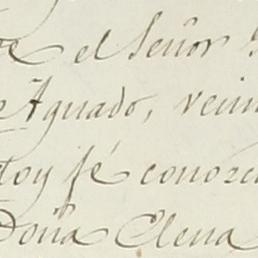 el Señor
Aguado, vein
doy fé conozc
Doña Elena